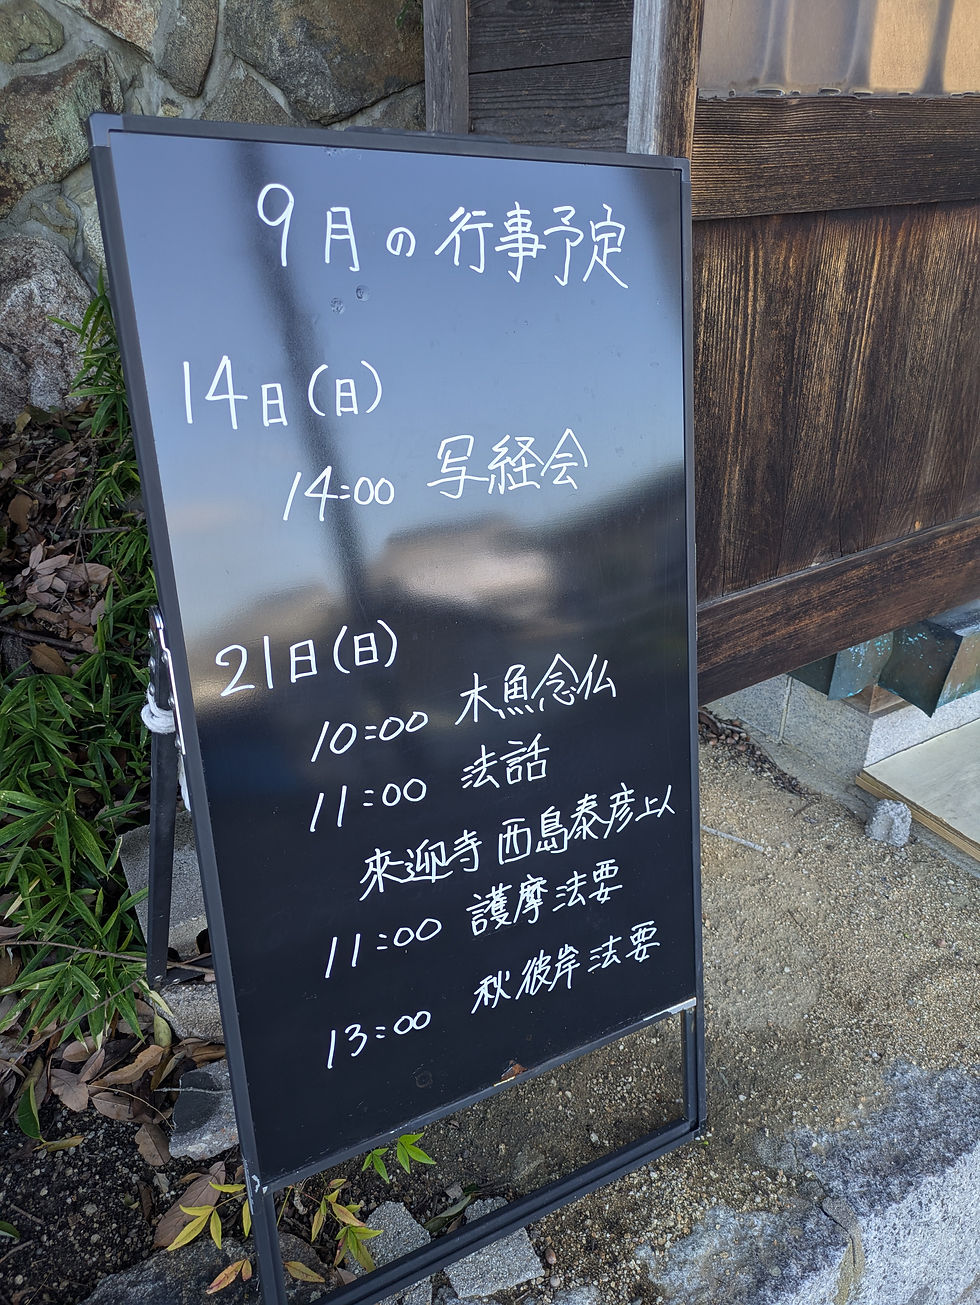 9月の行事予定
14日(日)
14:00 写経会
21日(日)
10:00 木魚念仏
11:00 法話
來迎寺 西島泰彦上人
11:00 護摩法要
13:00 秋彼岸法要